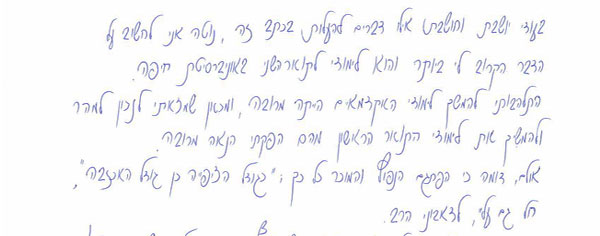 בעודי יושבת וחושבת אלו דברים להעלות בכתב זה, נוטה אני לחשוב על
הדבר הקרוב לי ביותר והוא לימודי לתואר השני באוניברסיטת חיפה.
התלהבותי להמשך לימודי האקדמאים הייתה מרובה, ומכאן שמצאתי לנכון למהר
ולהמשיך את לימודי התואר הראשון מהם הפקתי הנאה מרובה.
אולם, דומה כי הפתגם הנפוץ והמוכר כל כך: "כגודל הציפייה כן גודל האכזבה",
חל גם עלי, לצאביני הרב.